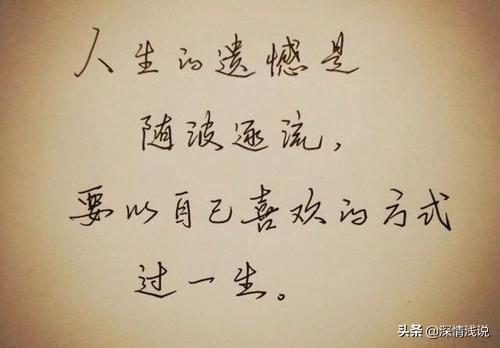 人生的遗憾是
随波逐流，
要以自己喜欢的方式
过一生。
头条 @深情浅说